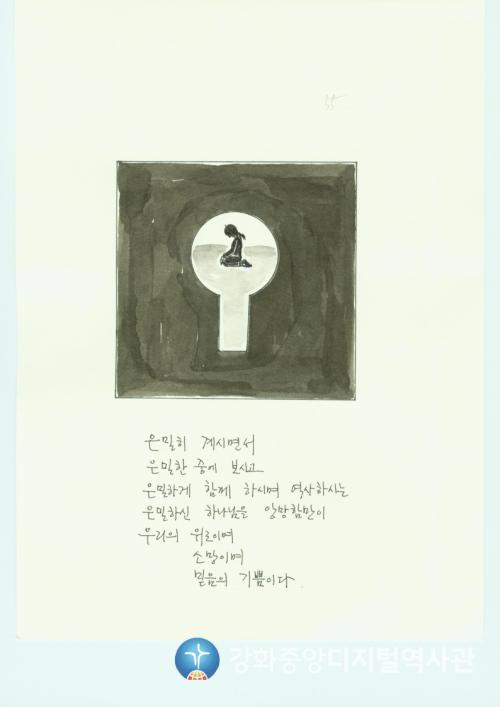 35
은밀히 계시면서
은밀한 중에 보시고
은밀하게 함께 하시며 역사하시는
은밀하신 하나님을 앙망함만이
우리의 위로이며
소망이며
믿음의 기쁨이다.
강화중앙디지털역사관